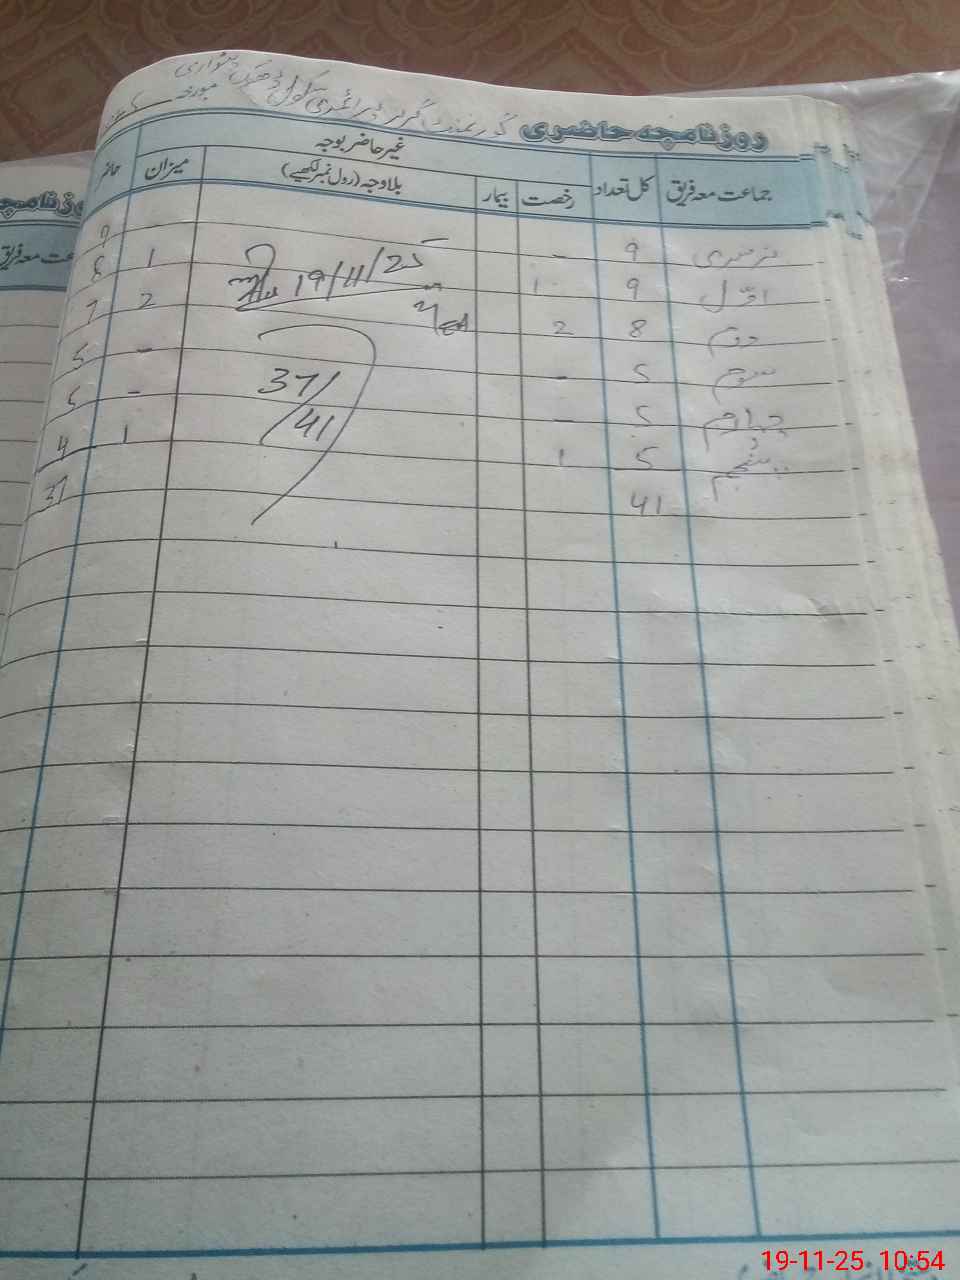 روزنامچہ حاضری گورنمنٹ گرلز پرائمری سکول
جماعت معہ فریق کل تعداد غیر حاضر بوجہ میزان حاضر
رخصت بیمار بلا وجہ (رول نمبر لکھیے)
نرسری 9 - 9
اوّل 9 1 1 8
دوم 8 2 2 7
سوم 5 - - 5
چہارم 5 - - 5
پنجم 5 1 1 4
41 37
19/11/25
37/41
روزنامچہ
جماعت معہ فریق
19-11-25 10:54